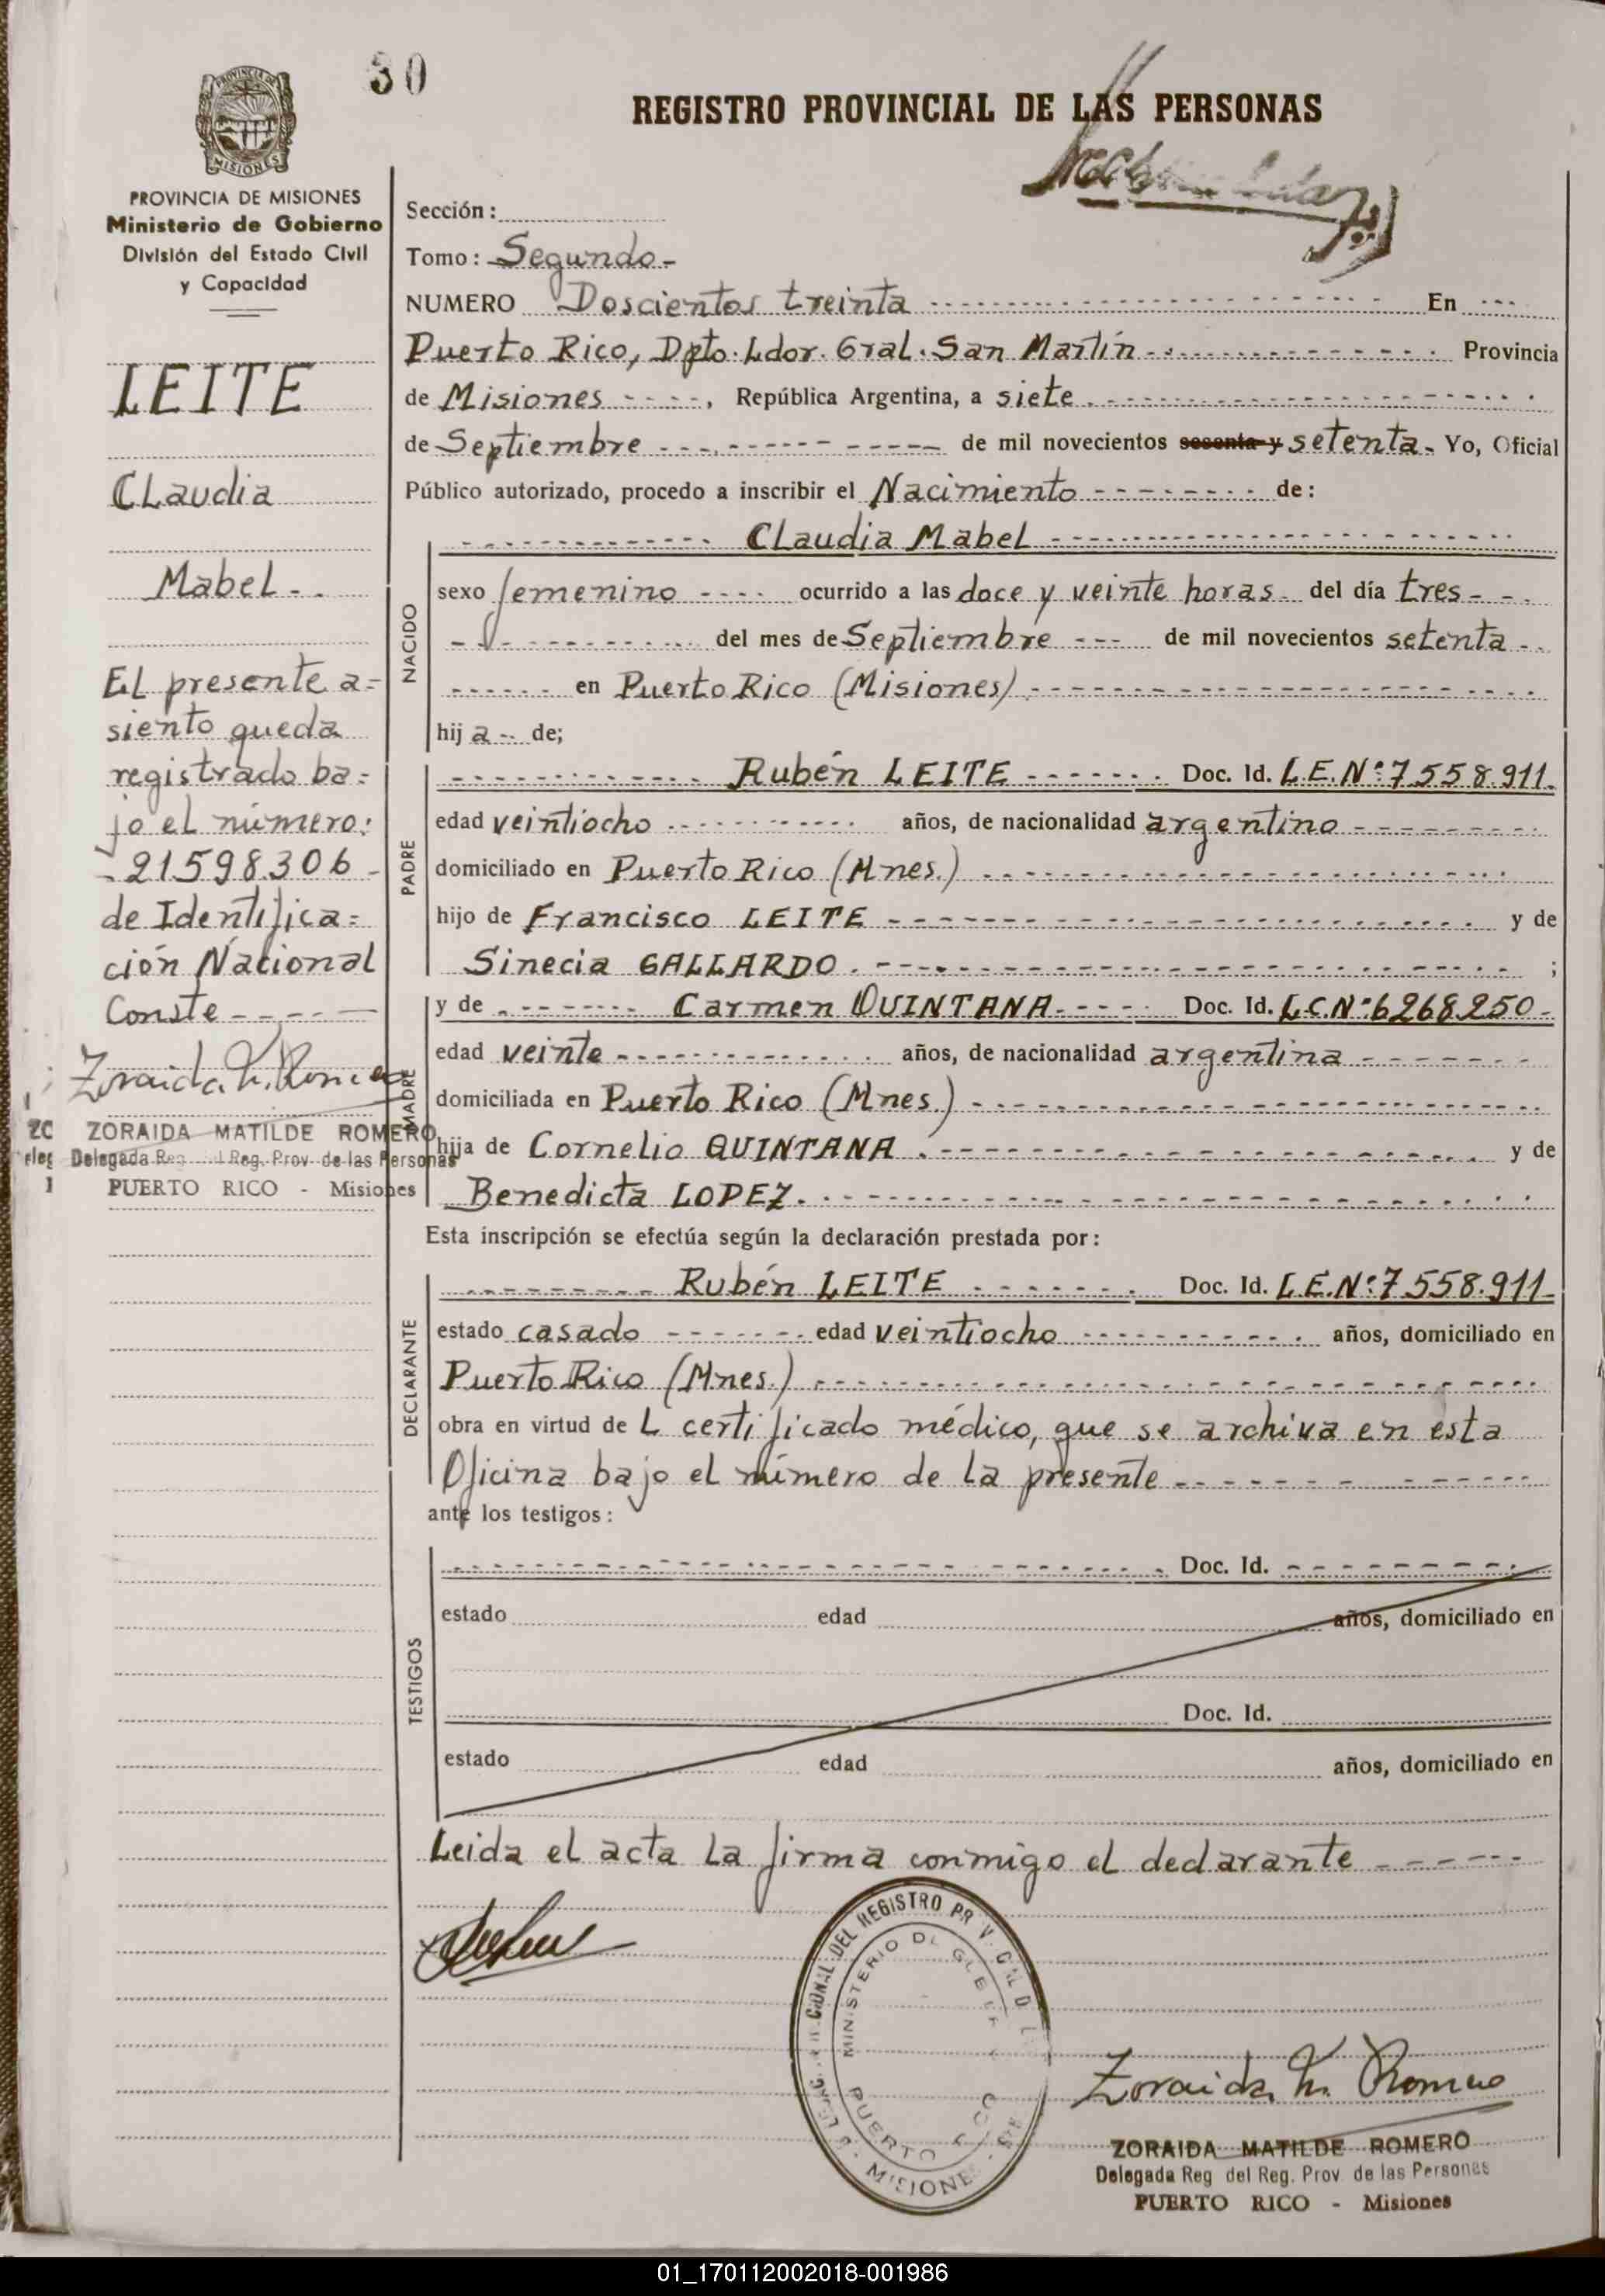 30
REGISTRO PROVINCIAL DE LAS PERSONAS
PROVINCIA DE
MISIONES
PROVINCIA DE MISIONES
Ministerio de Gobierno
División del Estado Civil
y Capacidad
LEITE
Claudia
Mabel
El presente a=
siento queda
registrado ba=
jo el número:
21598306
de Identifica=
ción Nacional
Conste
Zoraida M. Romero
ZORAIDA MATILDE ROMERO
Delegada Reg. Prov. de las Personas
PUERTO RICO - Misiones
Sección:
Tomo: Segundo
NUMERO Doscientos treinta En
Puerto Rico, Dpto. Ldor. Gral. San Martín Provincia
de Misiones, República Argentina, a siete
de Septiembre de mil novecientos sesenta y setenta. Yo, Oficial
Público autorizado, procedo a inscribir el Nacimiento de:
Claudia Mabel
NACIDO
sexo femenino ocurrido a las doce y veinte horas del día tres
del mes de Septiembre de mil novecientos setenta
en Puerto Rico (Misiones)
hij a de;
PADRE
Rubén LEITE Doc. Id. L.E.Nº 7.558.911
edad veintiocho años, de nacionalidad argentino
domiciliado en Puerto Rico (Mnes.)
hijo de Francisco LEITE y de
Sinecia GALLARDO ;
MADRE
y de Carmen QUINTANA Doc. Id. L.C.Nº 6268250
edad veinte años, de nacionalidad argentina
domiciliada en Puerto Rico (Mnes.)
hija de Cornelio QUINTANA y de
Benedicta LOPEZ.
Esta inscripción se efectúa según la declaración prestada por:
DECLARANTE
Rubén LEITE Doc. Id. L.E.Nº 7.558.911
estado casado edad veintiocho años, domiciliado en
Puerto Rico (Mnes.)
obra en virtud de L certificado médico, que se archiva en esta
Oficina bajo el número de la presente
ante los testigos:
TESTIGOS
Doc. Id.
estado edad años, domiciliado en
Doc. Id.
estado edad años, domiciliado en
Leida el acta la firma conmigo el declarante
DEL REGISTRO
MINISTERIO DE
PUERTO RICO
MISIONES
Zoraida M. Romero
ZORAIDA MATILDE ROMERO
Delegada Reg del Reg. Prov de las Personas
PUERTO RICO - Misiones
01_170112002018-001986